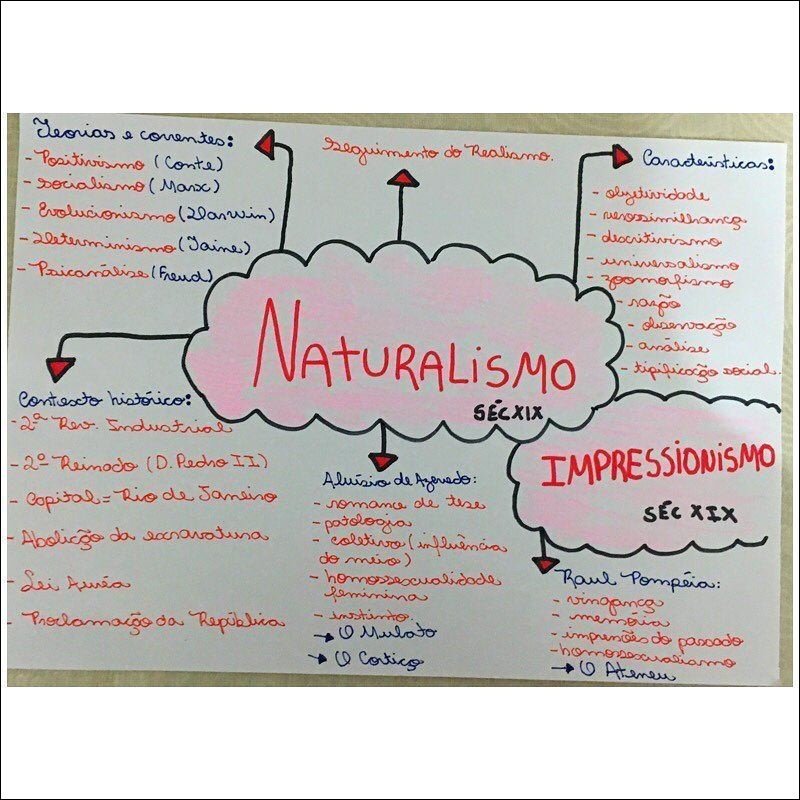 Teorias e correntes:
- Positivismo (Conte)
- socialismo (Marx)
- Evolucionismo (Darwin)
- Determinismo (Taine)
- Psicanálise (Freud)
Seguimento do Realismo.
Características:
- objetividade
- verossimilhança
- descritivismo
- universalismo
- zoomorfismo
- razão
- observação
- análise
- tipificação social.
NATURALISMO
SÉC XIX
Contexto histórico:
- 2ª Rev. Industrial
- 2º Reinado (D. Pedro II)
- Capital = Rio de Janeiro
- Abolição da escravatura
- Lei Auréa
- Proclamação da República
Aluísio de Azevedo:
- romance de tese
- patologia
- coletivo (influência
do meio)
- homossexualidade
feminina
- instinto.
→ O Mulato
→ O Cortiço
IMPRESSIONISMO
SÉC XIX
Raul Pompéia:
- vingança
- memória
- impressões do passado
- homossexualismo
→ O Ateneu